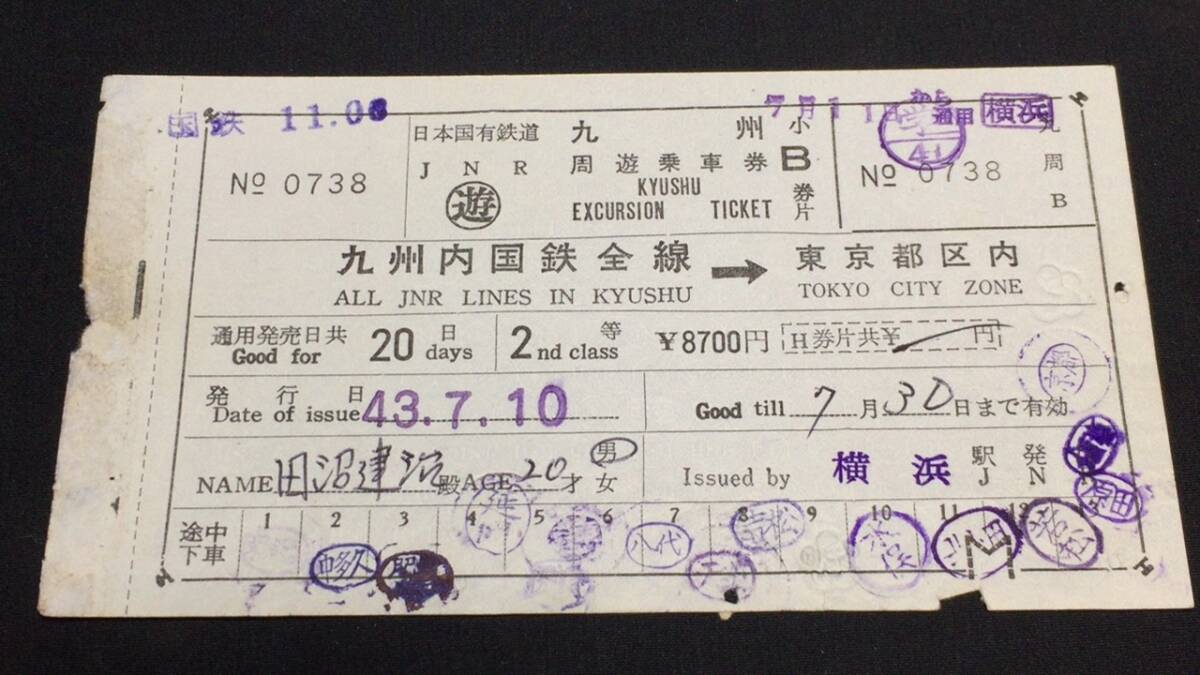 国鉄 11.08
7月11日から通用 横浜
日本国有鉄道 九州 小
JNR 周遊乗車券 B
遊 KYUSHU 券
EXCURSION TICKET 片
№ 0738
学
41
九
周
B
№ 0738
九州内国鉄全線 → 東京都区内
ALL JNR LINES IN KYUSHU TOKYO CITY ZONE
通用発売日共 20日 2等 ¥8700円 H券片共¥ 円
Good for days nd class
発行日 43.7.10 Good till 7月30日まで有効
Date of issue
NAME 田沼津 殿 AGE 20才 男 女 Issued by 横浜 駅発
JN
途中下車 1 2 3 4 5 6 7 8 9 10 11 12
中多久 八代 若松
京都